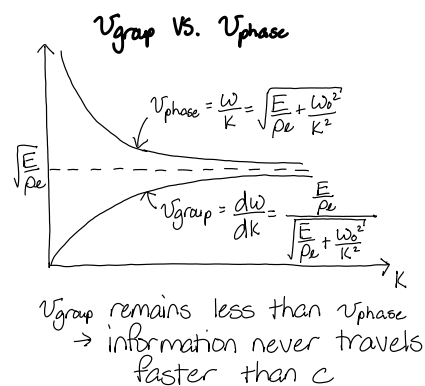 Vgroup vs. Vphase
Vphase = ω/K = √(E/ρe + ω₀²/K²)
√(E/ρe)
Vgroup = dω/dK = (E/ρe)/√(E/ρe + ω₀²/K²)
K
Vgroup remains less than Vphase
→ information never travels
faster than c